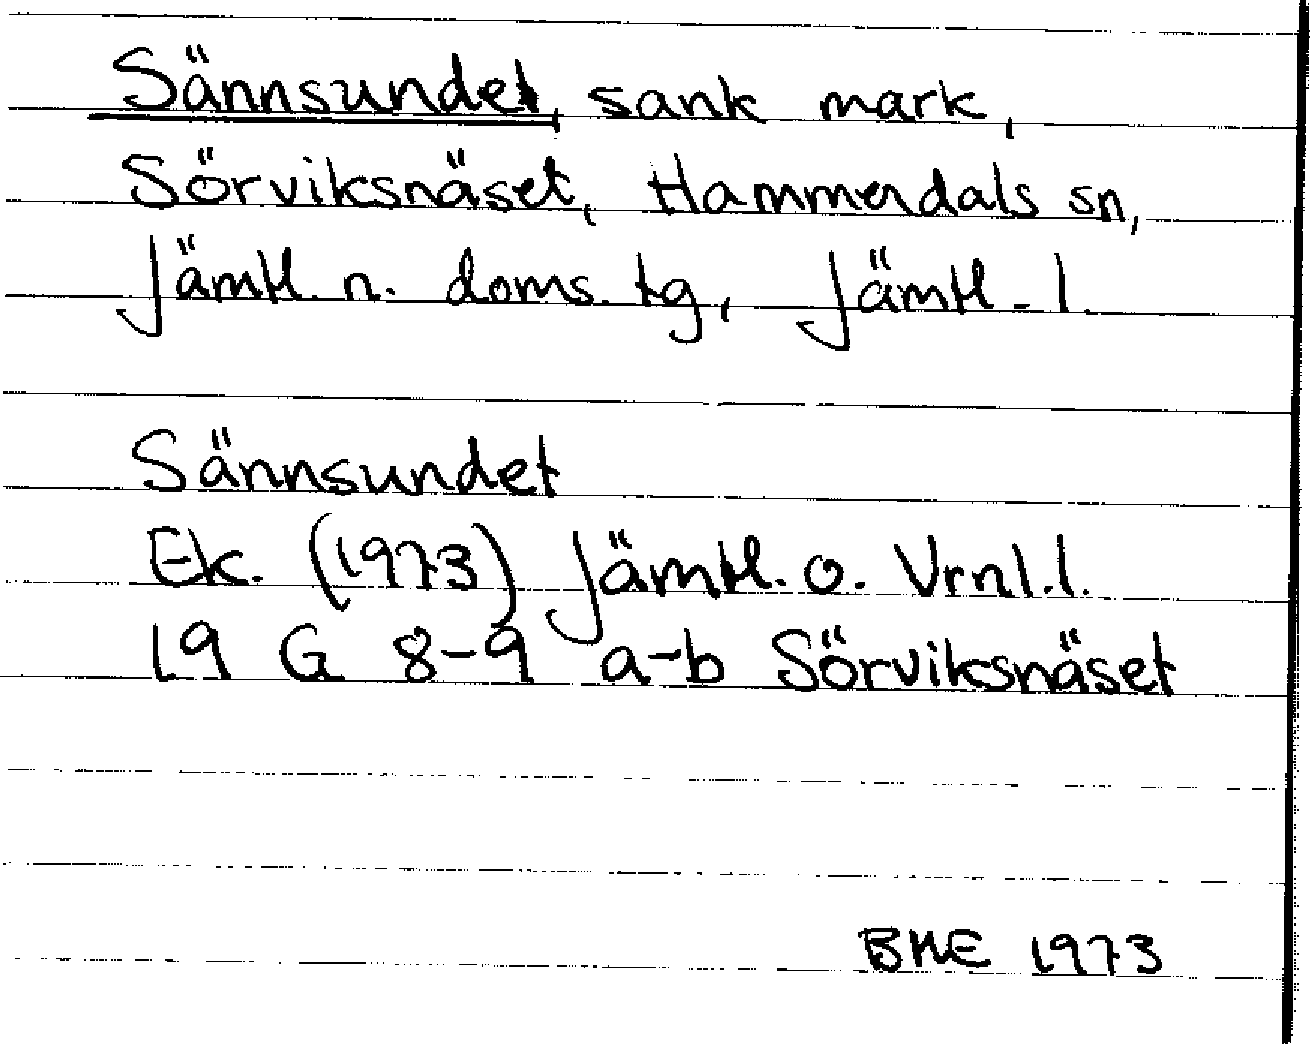 Sännsundet, sank mark,
Sörviksnäset, Hammerdals sn,
Jämtl. n. doms. tg, Jämtl. l.
Sännsundet
Ek. (1973) Jämtl. o. Vrnl. l.
19 G 8-9 a-b Sörviksnäset
BME 1973